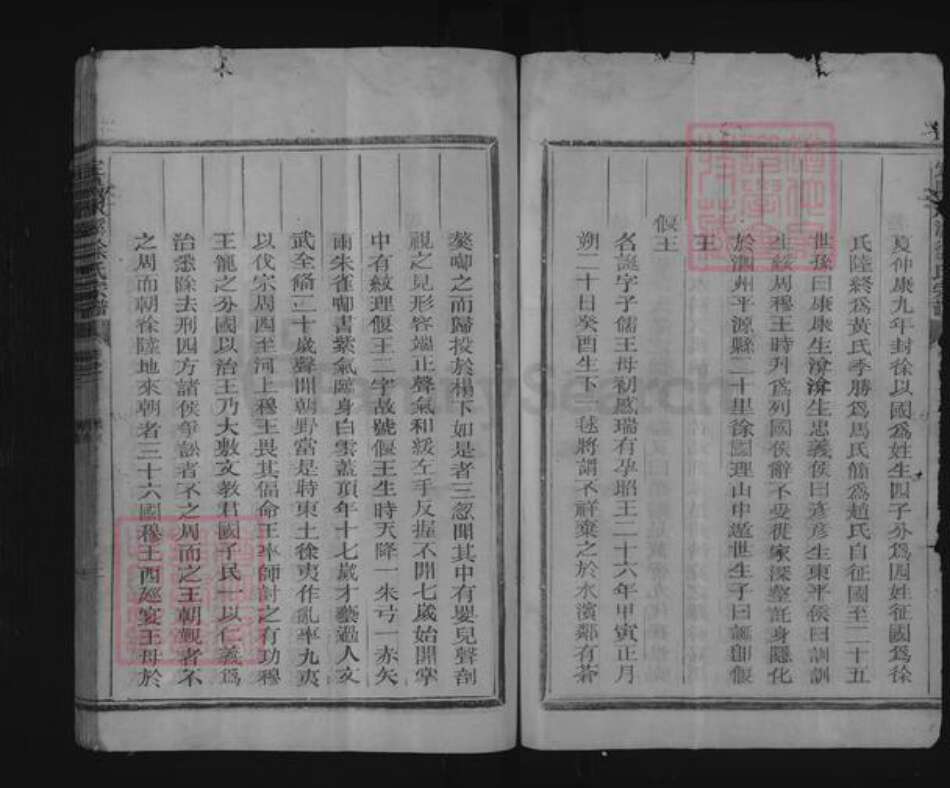 夏仲康九年封徐以國爲姓生四子分爲四姓征國爲徐
氏陸終爲黃氏季勝爲馬氏簡爲趙氏自征國至二十五
世孫曰康康生渰渰生忠義侯曰彥彥生東平侯曰訓訓
生綏周穆王時列爲列國侯辭不受徙家深壑託身隱化
於泗州平源縣二十里徐國理山中遁世生子曰誕卽偃
王
偃王
名誕字子儒王母初感瑞有孕昭王二十六年甲寅正月
朔二十日癸酉生下一毬將謂不祥棄之於水濱鄰有蒼
葵啣之而歸投於榻下如是者三忽聞其中有嬰兒聲剖
視之見形容端正聲氣和緩左手反握不開七歲始開掌
中有紋理偃王二字故號偃王生時天降一朱弓一赤矢
雨朱雀啣書紫氣臨身白雲蓋頂年十七歲才藝過人文
武全備二十歲聲聞朝野當是時東土徐夷作亂率九夷
以伐宗周西至河上穆王畏其偪命王率師討之有功穆
王寵之分國以治王乃大敷文教君國子民一以仁義爲
治悉除去刑四方諸侯爭訟者不之周而之王朝覲者不
之周而朝徐陸地來朝者三十六國穆王西廵宴王母於